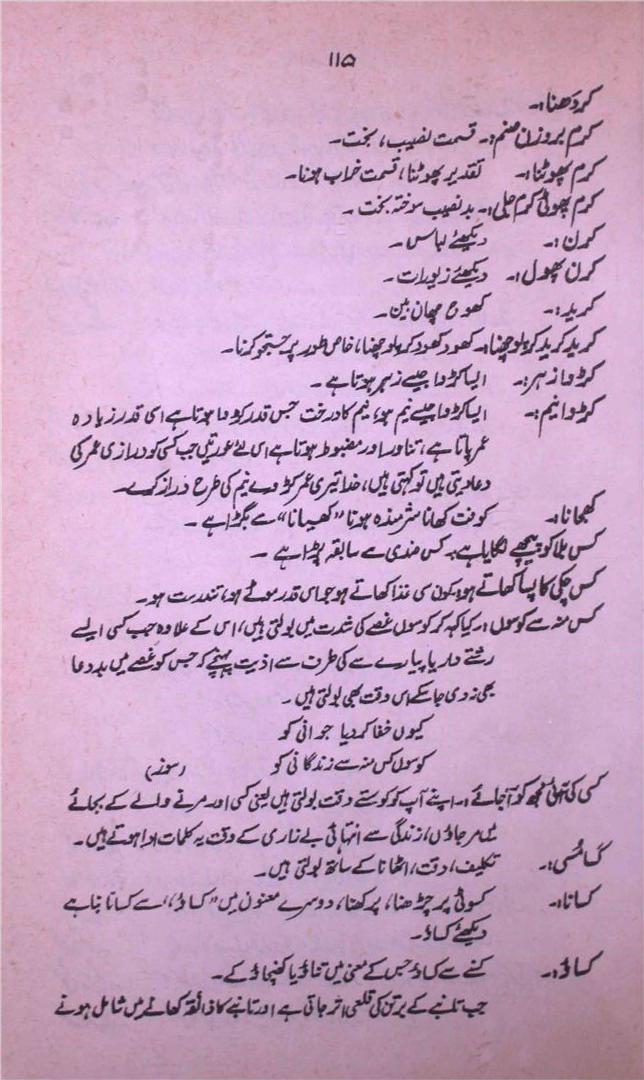 ۱۱۵
کردھنا:۔
کرم بروزن صنم:۔ قسمت نصیب، بخت۔
کرم پھوٹنا:۔ تقدیر پھوٹنا، قسمت خراب ہونا۔
کرم پھوٹی کرم جلی:۔ بدنصیب سوختہ بخت۔
کرن:۔ دیکھئے لباس۔
کرن پھول:۔ دیکھئے زیورات۔
کرید:۔ کھوج چھان بین۔
کرید کرید کر پوچھنا:۔ کھود کھود کر پوچھنا، خاص طور پر جستجو کرنا۔
کڑوا زہر:۔ ایسا کڑوا جیسے زہر ہوتا ہے۔
کڑوا نیم:۔ ایسا کڑوا جیسے نیم ہو، نیم کا درخت جس قدر کڑوا ہوتا ہے اسی قدر زیادہ
عمر پاتا ہے، تناور اور مضبوط ہوتا ہے اسی لئے عورتیں جب کسی کو درازی عمر کی
دعا دیتی ہیں تو کہتی ہیں، خدا تیری عمر کڑوے نیم کی طرح دراز کرے۔
کھجانا:۔ کوفت کھانا شرمندہ ہونا "کھسیانا" سے بگڑا ہے۔
کس بلا کو پیچھے لگایا ہے:۔ کس ضدی سے سابقہ پڑا ہے۔
کس چکی کا پسا کھاتے ہو:۔ کون سی غذا کھاتے ہو جو اس قدر موٹے ہو، تندرست ہو۔
کس منہ سے کوسوں:۔ کیا کہہ کر کوسوں غصے کی شدت میں بولتی ہیں، اس کے علاوہ جب کسی ایسے
رشتے دار یا پیارے سے کی طرف سے اذیت پہنچے کہ جس کو غصے میں بددعا
بھی نہ دی جا سکے اس وقت بھی بولتی ہیں۔
کیوں خفا کر دیا جوانی کو
کوسوں کس منہ سے زندگانی کو (سوز)
کسی کی آئی مجھ کو آ جائے:۔ اپنے آپ کو کوستے وقت بولتی ہیں یعنی کسی اور مرنے والے کے بجائے
میں مر جاؤں، زندگی سے انتہائی بے زاری کے وقت یہ کلمات ادا ہوتے ہیں۔
تکلیف، دقت، اٹھانا کے ساتھ بولتی ہیں۔
کسانا:۔ کسوٹی پر چڑھنا، پرکھنا، دوسرے معنوں میں "کساؤ" سے کسانا بنا ہے
دیکھئے کساؤ۔
کساؤ:۔ کسنے سے کساؤ جس کے معنی میں تناؤ یا کھنچاؤ کے۔
جب تانبے کے برتن کی قلعی اتر جاتی ہے اور تانبے کا ذائقہ کھانے میں شامل ہونے